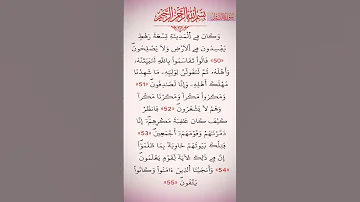 بِسْمِ اللَّهِ الرَّحْمَٰنِ الرَّحِيمِ
وَكَانَ فِي اِ۬لْمَدِينَةِ تِسْعَةُ رَهْطٖ
يُفْسِدُونَ فِي اِ۬لَارْضِ وَلَا يُصْلِحُونَۖ
«50» قَالُواْ تَقَاسَمُواْ بِاللَّهِ لَنُبَيِّتَنَّهُۥ
وَأَهْلَهُۥ ثُمَّ لَنَقُولَنَّ لِوَلِيِّهِۦ مَا شَهِدْنَا
مُهْلَكَ أَهْلِهِۦ وَإِنَّا لَصَٰدِقُونَۖ «51»
وَمَكَرُواْ مَكْراٗ وَمَكَرْنَا مَكْراٗ
وَهُمْ لَا يَشْعُرُونَۖ «52» فَانظُرْ
كَيْفَ كَانَ عَٰقِبَةُ مَكْرِهِمُۥٓ إِنَّا
دَمَّرْنَٰهُمْ وَقَوْمَهُمُۥٓ أَجْمَعِينَۖ «53»
فَتِلْكَ بُيُوتُهُمْ خَاوِيَةَۢ بِمَا ظَلَمُوٓاْ
إِنَّ فِي ذَٰلِكَ ءَلَايَةٗ لِّقَوْمٖ يَعْلَمُونَۖ
«54» وَأَنجَيْنَا اَ۬لذِينَ ءَامَنُواْ وَكَانُواْ
يَتَّقُونَۖ «55»